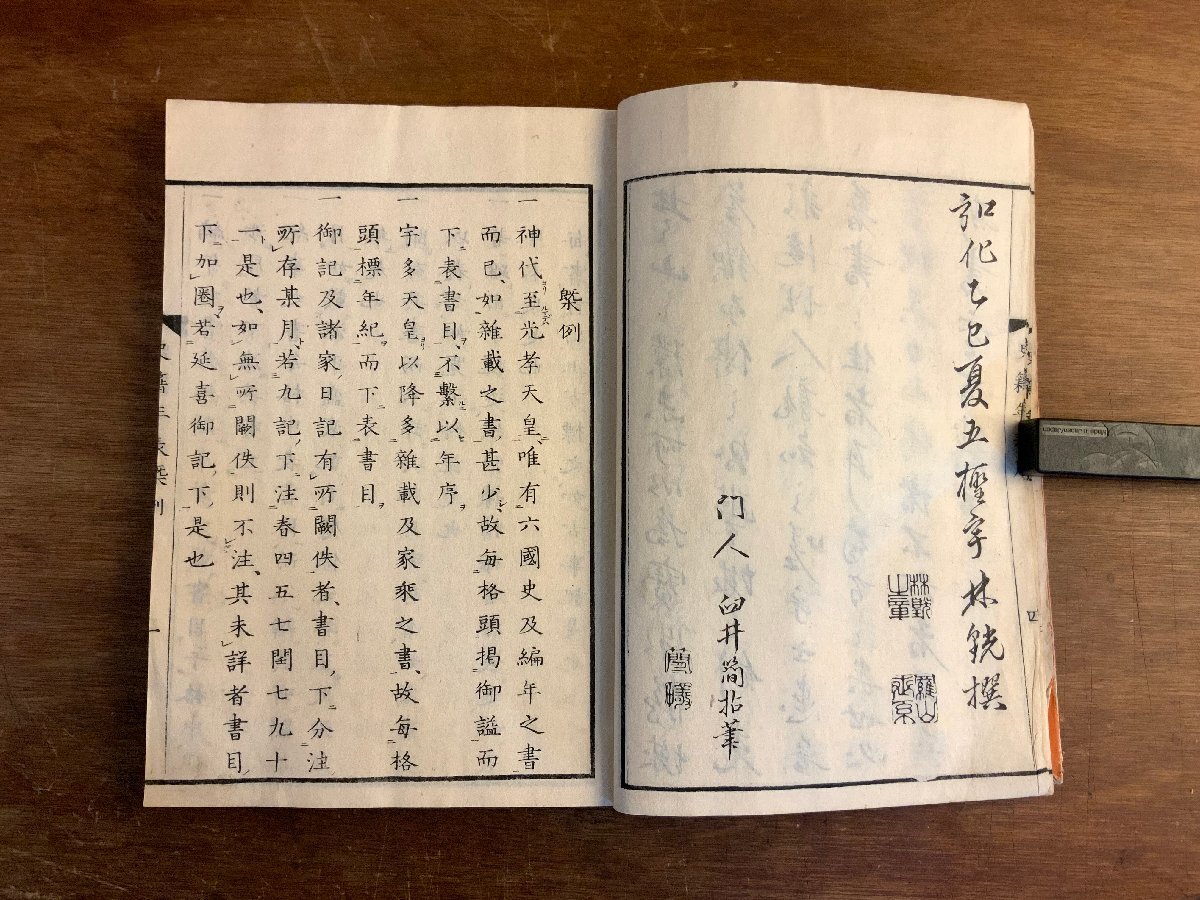 史籍年
四
弘化乙巳夏五檉宇林皝撰
門人 臼井簡拈筆
槩例
一神代至光孝天皇唯有六國史及編年之書
而已如雜載之書甚少故每格頭揭御謚而
下表書目不繫以年序
一宇多天皇以降多雜載及家乘之書故每格
頭標年紀而下表書目
一御記及諸家日記有所闕佚者書目下分注
所存某月若九記下注春四五七閏七九十
一是也如無所闕佚則不注其未詳者書目
下如圈若延喜御記下是也
史籍年表槩例
一